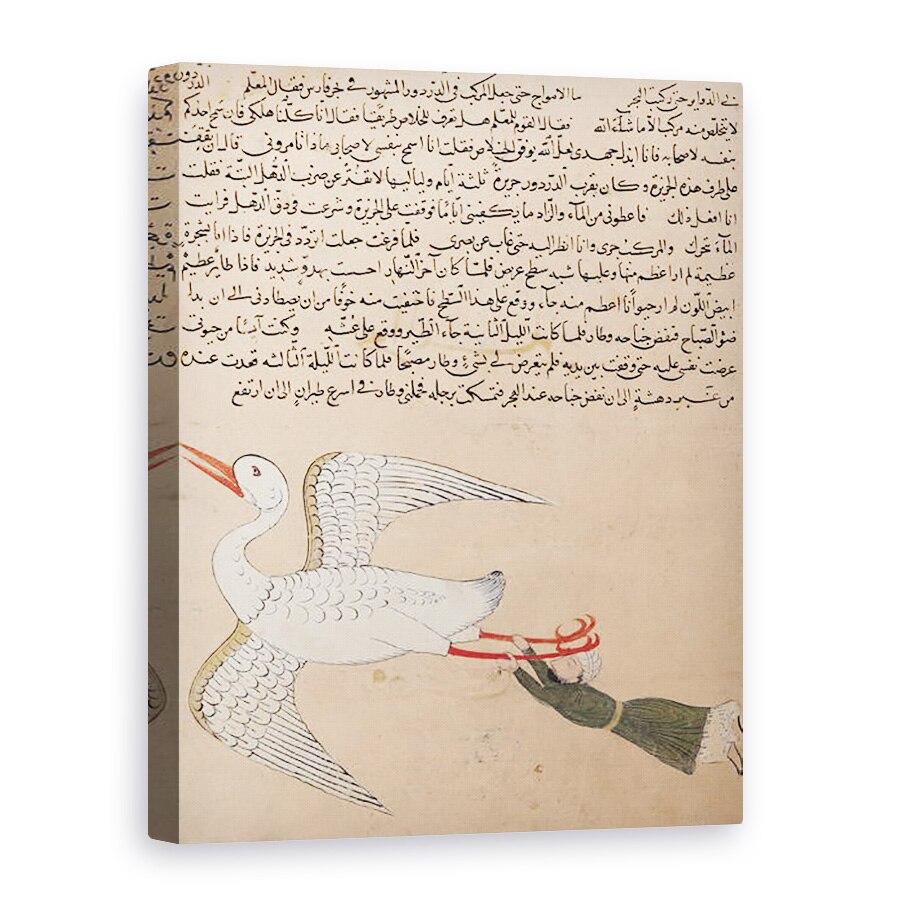 في الدوار حتى ركبنا البحر ما الامواج حتى حصل المركب في الدردور المشهور في بحر فارس فقال المعلم
لا يتخلص منه مركب الا ما شاء الله فقال القوم للمعلم هل تعرف للخلاص طريقا فقال انا كلنا هلكى فان سمح احدكم
بنفسه لاصحابه فانا ابذل جهدي لعل الله يوفق الخلاص فقلت انا اسمح بنفسي لاصحابي بماذا انا مروني قال ان تقف
على طرف هذه الجزيرة وكان بقرب الدردور جزيرة ثلثة ايام ولياليها لا تفتر عن ضرب الدهل البتة فقلت
انا افعل ذلك فاعطوني من المآء والزاد ما يكفيني اياما فوقفت على الجزيرة وشرعت في دق الدهل فرايت
المآء تحرك والمركب جرى وانا انظر اليه حتى غاب عن بصري فلما فرغت جعلت اتردد في الجزيرة فاذا انا بشجرة
عظيمة لم ار اعظم منها وعليها شبه سطح عريض فلما كان آخر النهار احست بهدو شديد فاذا طاير عظيم
ابيض اللون لم ار حيوانا اعظم منه جآء ووقع على هذا السطح فاختفيت منه خوفا من ان يصطادني الى ان بدا
ضوء الصباح فنفض جناحه وطار فلما كانت الليل الثانية جآء الطير ووقع على عشه وكنت آيسا من حيوتي
عرضت نفسي عليه حتى وقفت بين يديه فلم يتعرض لي لشيء وطار مصبحا فلما كانت الليلة الثالثه قعدت عنده
من غير دهشة الى ان نفض جناحه عند الفجر فتمسكت برجله فحملني وطار في اسرع طيران الى ان ارتفع